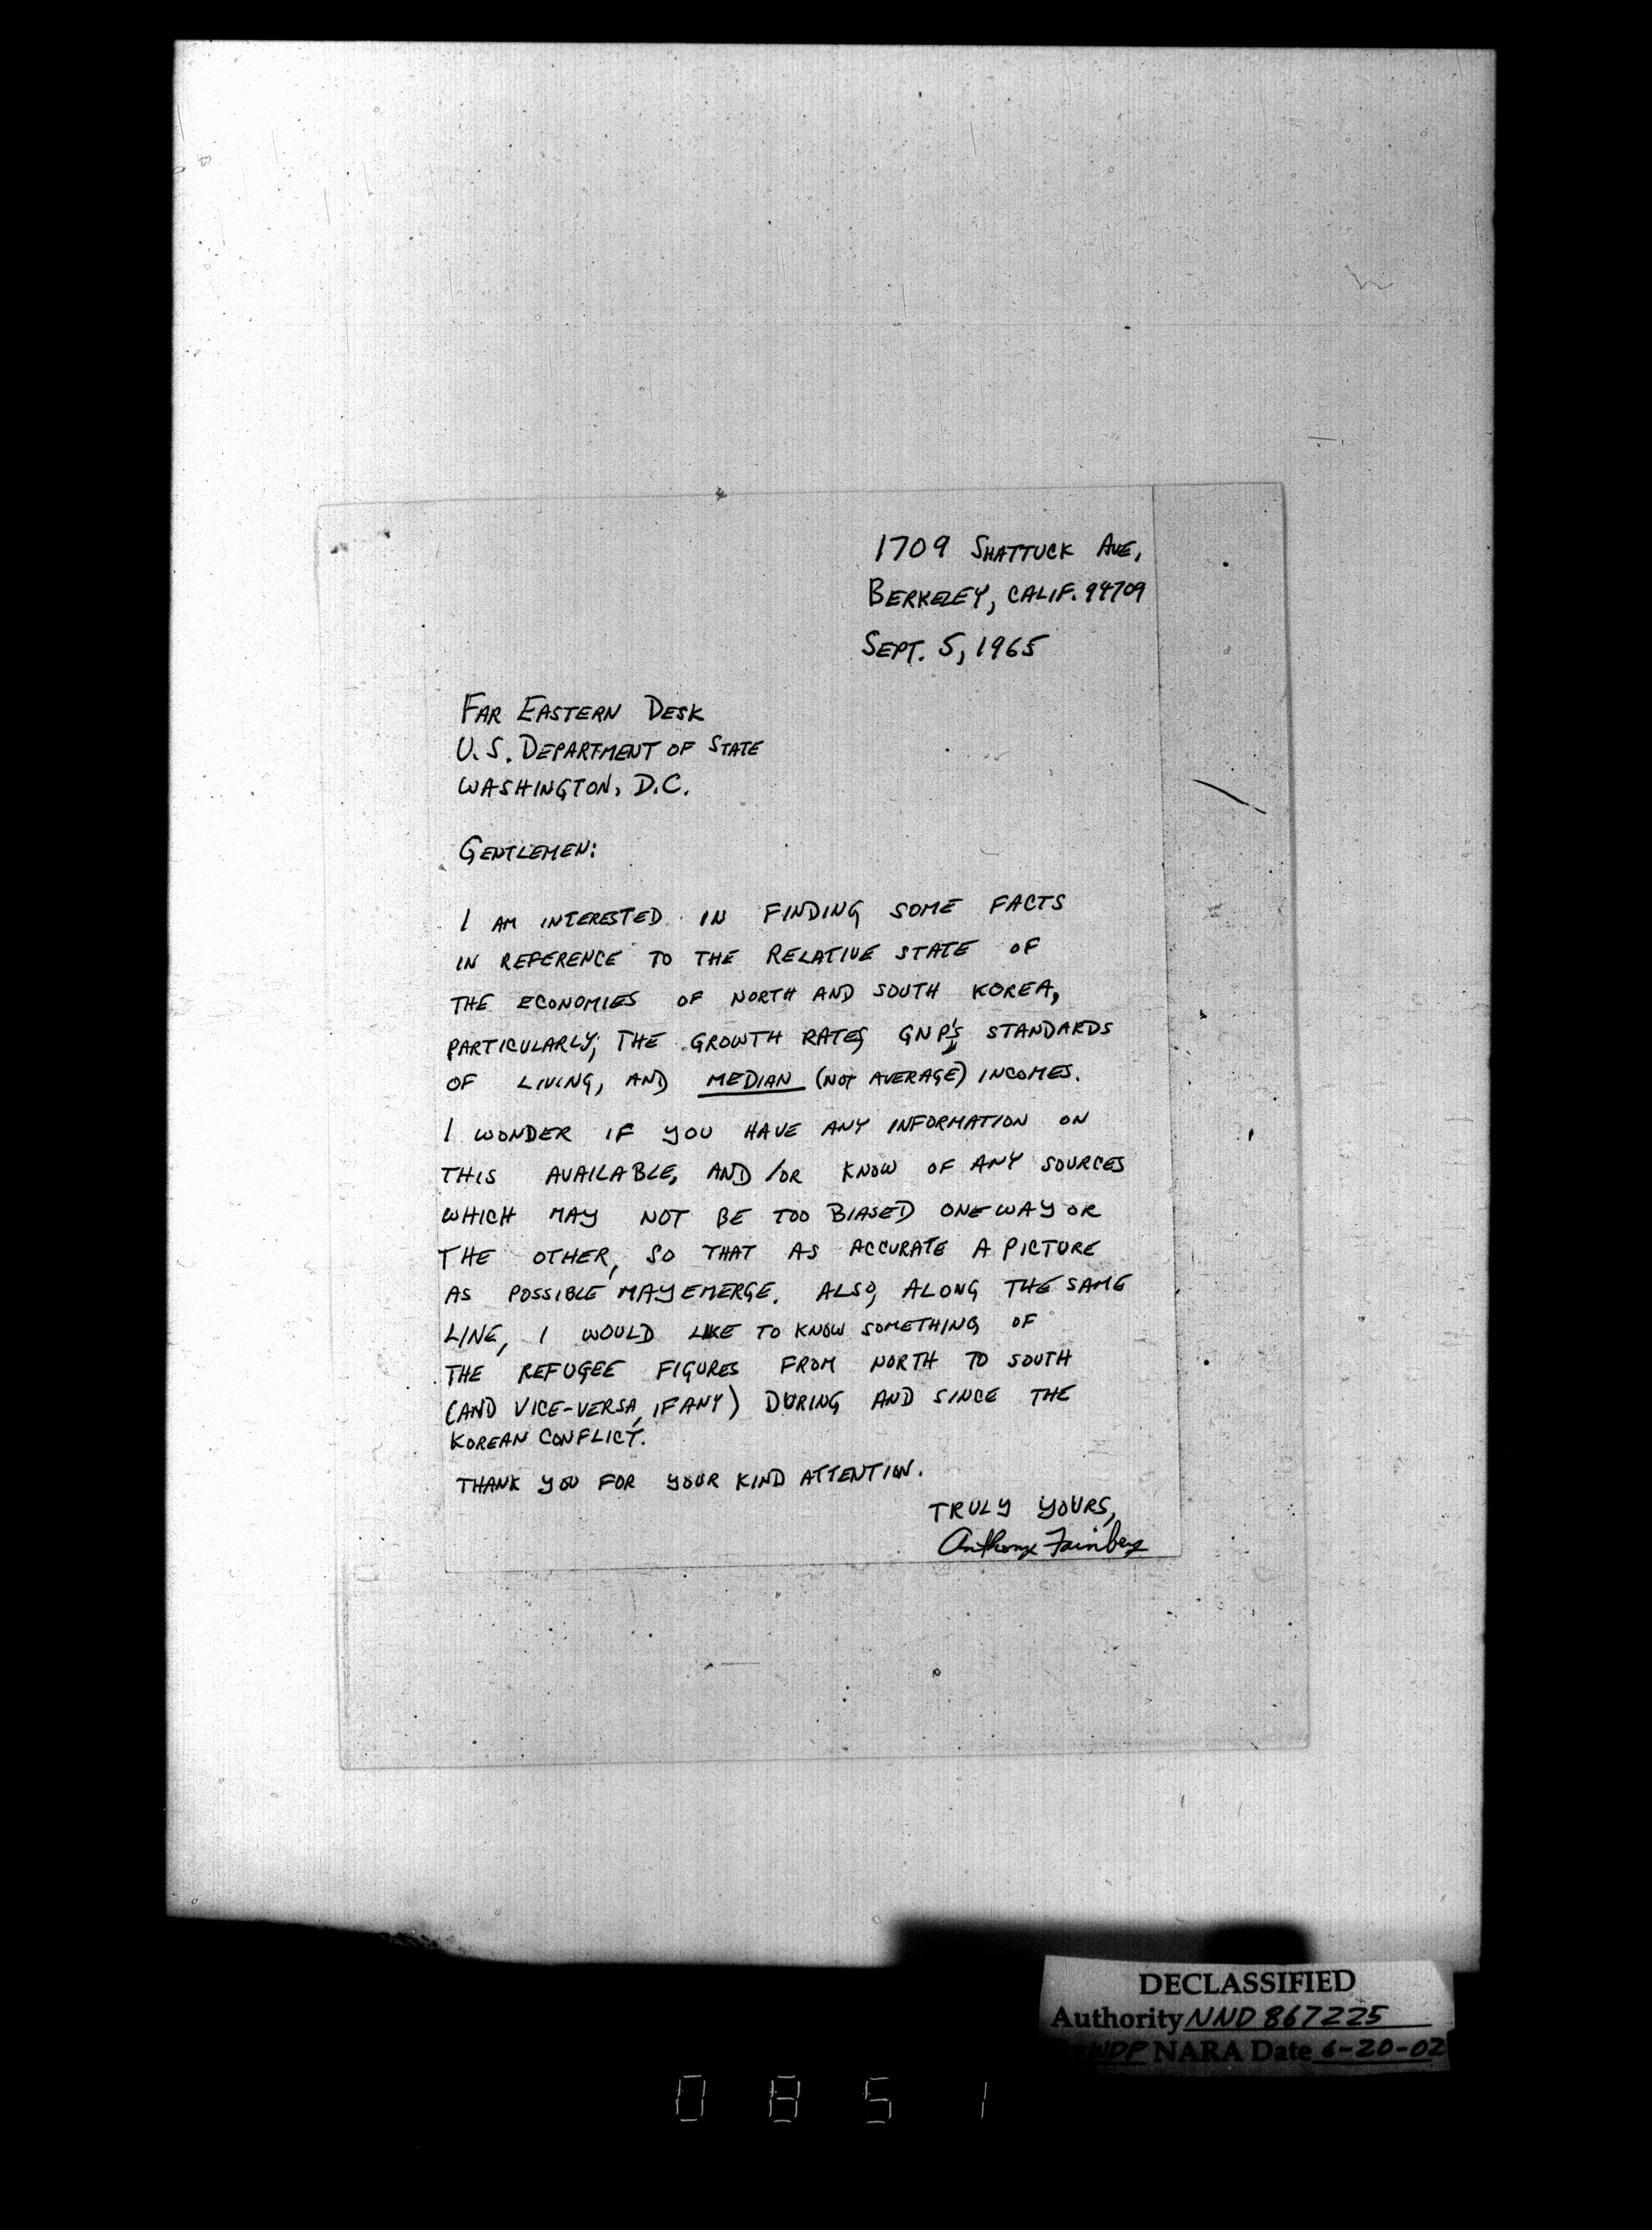 1709 SHATTUCK AVE,
BERKELEY, CALIF. 94709
SEPT. 5, 1965
FAR EASTERN DESK
U.S. DEPARTMENT OF STATE
WASHINGTON, D.C.
GENTLEMEN:
I AM INTERESTED IN FINDING SOME FACTS
IN REFERENCE TO THE RELATIVE STATE OF
THE ECONOMIES OF NORTH AND SOUTH KOREA,
PARTICULARLY, THE GROWTH RATES, GNP'S, STANDARDS
OF LIVING, AND MEDIAN (NOT AVERAGE) INCOMES.
I WONDER IF YOU HAVE ANY INFORMATION ON
THIS AVAILABLE, AND/OR KNOW OF ANY SOURCES
WHICH MAY NOT BE TOO BIASED ONE WAY OR
THE OTHER, SO THAT AS ACCURATE A PICTURE
AS POSSIBLE MAY EMERGE. ALSO, ALONG THE SAME
LINE, I WOULD LIKE TO KNOW SOMETHING OF
THE REFUGEE FIGURES FROM NORTH TO SOUTH
(AND VICE-VERSA, IF ANY) DURING AND SINCE THE
KOREAN CONFLICT.
THANK YOU FOR YOUR KIND ATTENTION.
TRULY YOURS,
Anthony Fainberg
DECLASSIFIED
Authority NND 867225
WDP NARA Date 6-20-02
0851